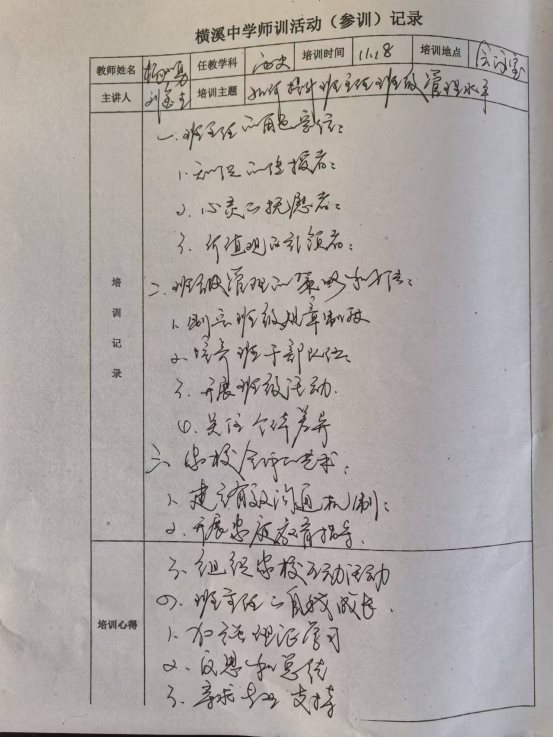 横溪中学师训活动（参训）记录
教师姓名 任教学科 历史 培训时间 11.28 培训地点 会议室
主讲人 培训主题 如何提升班主任班级管理水平
培训记录
一、班主任的角色定位：
1. 知识的传授者：
2. 心灵的抚慰者：
3. 价值观的引领者：
二、班级管理的策略和方法：
1. 制定班级规章制度
2. 培养班干部队伍：
3. 开展班级活动.
4. 关注个体差异
三、家校合作的艺术：
1. 建立有效沟通机制：
2. 开展家庭教育指导.
培训心得
3. 组织家校互动活动
四. 班主任的自我成长.
1. 加强理论学习
2. 反思和总结
3. 寻求专业支持